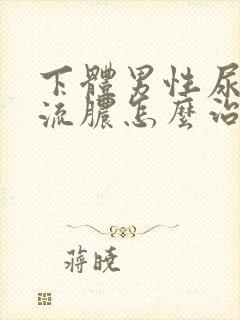 下體男性尿
流膿怎麼治
蔣曉